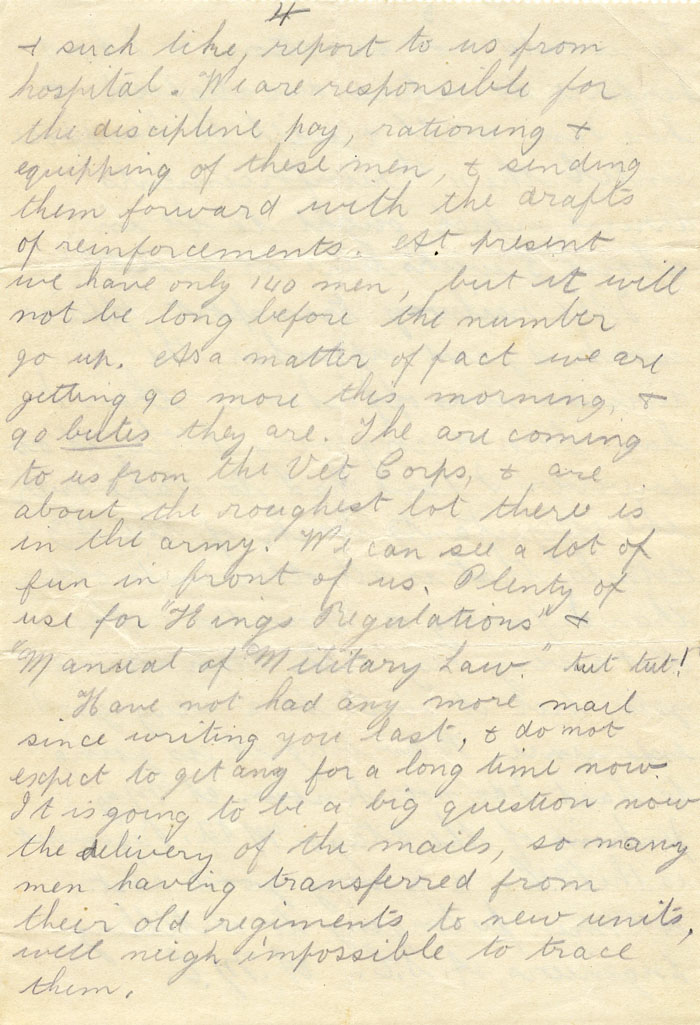 4
& such like, report to us from
hospital. We are responsible for
the discipline pay, rationing &
equipping of these men, & sending
them forward with the drafts
of reinforcements. At present
we have only 140 men, but it will
not be long before the number
go up. As a matter of fact we are
getting 90 more this morning, &
90 butes they are. The are coming
to us from the Vet Corps, & are
about the roughest lot there is
in the army. We can see a lot of
fun in front of us. Plenty of
use for "Kings Regulations" &
"Manual of Military Law." tut tut!
Have not had any more mail
since writing you last, & do not
expect to get any for a long time now.
It is going to be a big question now
the delivery of the mails, so many
men having transferred from
their old regiments to new units,
well neigh impossible to trace
them.